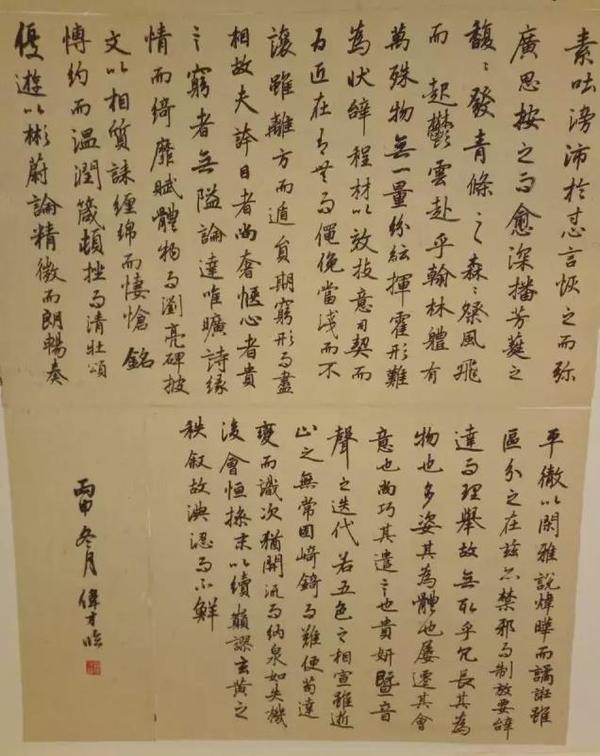 素吐滂沛於寸心言恢之而弥
廣思按之而愈深播芳蕤之
馥〻發青條之森〻粲風飛
而起鬱雲赴乎翰林體有
萬殊物無一量紛紜揮霍形難
為狀辭程材以效技意司契而
為匠在有無而僶俛當淺而不
讓雖離方而遁員期窮形而盡
相故夫誇目者尚奢愜心者貴
之窮者無隘論達唯曠詩緣
情而綺靡賦體物而瀏亮碑披
文以相質誄纏綿而悽愴銘
博約而温潤箴頓挫而清壯頌
優遊以彬蔚論精微而朗暢奏
平徹以閑雅說煒曄而譎誑雖
區分之在茲亦禁邪而制放要辭
達而理舉故無取乎冗長其為
物也多姿其為體也屢遷其會
意也尚巧其遣之也貴妍暨音
聲之迭代若五色之相宣雖逝
止之無常固崎錡而難便苟達
變而識次猶開流而納泉如失機
後會恒操末以續顛謬玄黃之
秩敘故淟涊而不鮮
丙申冬月偉才臨